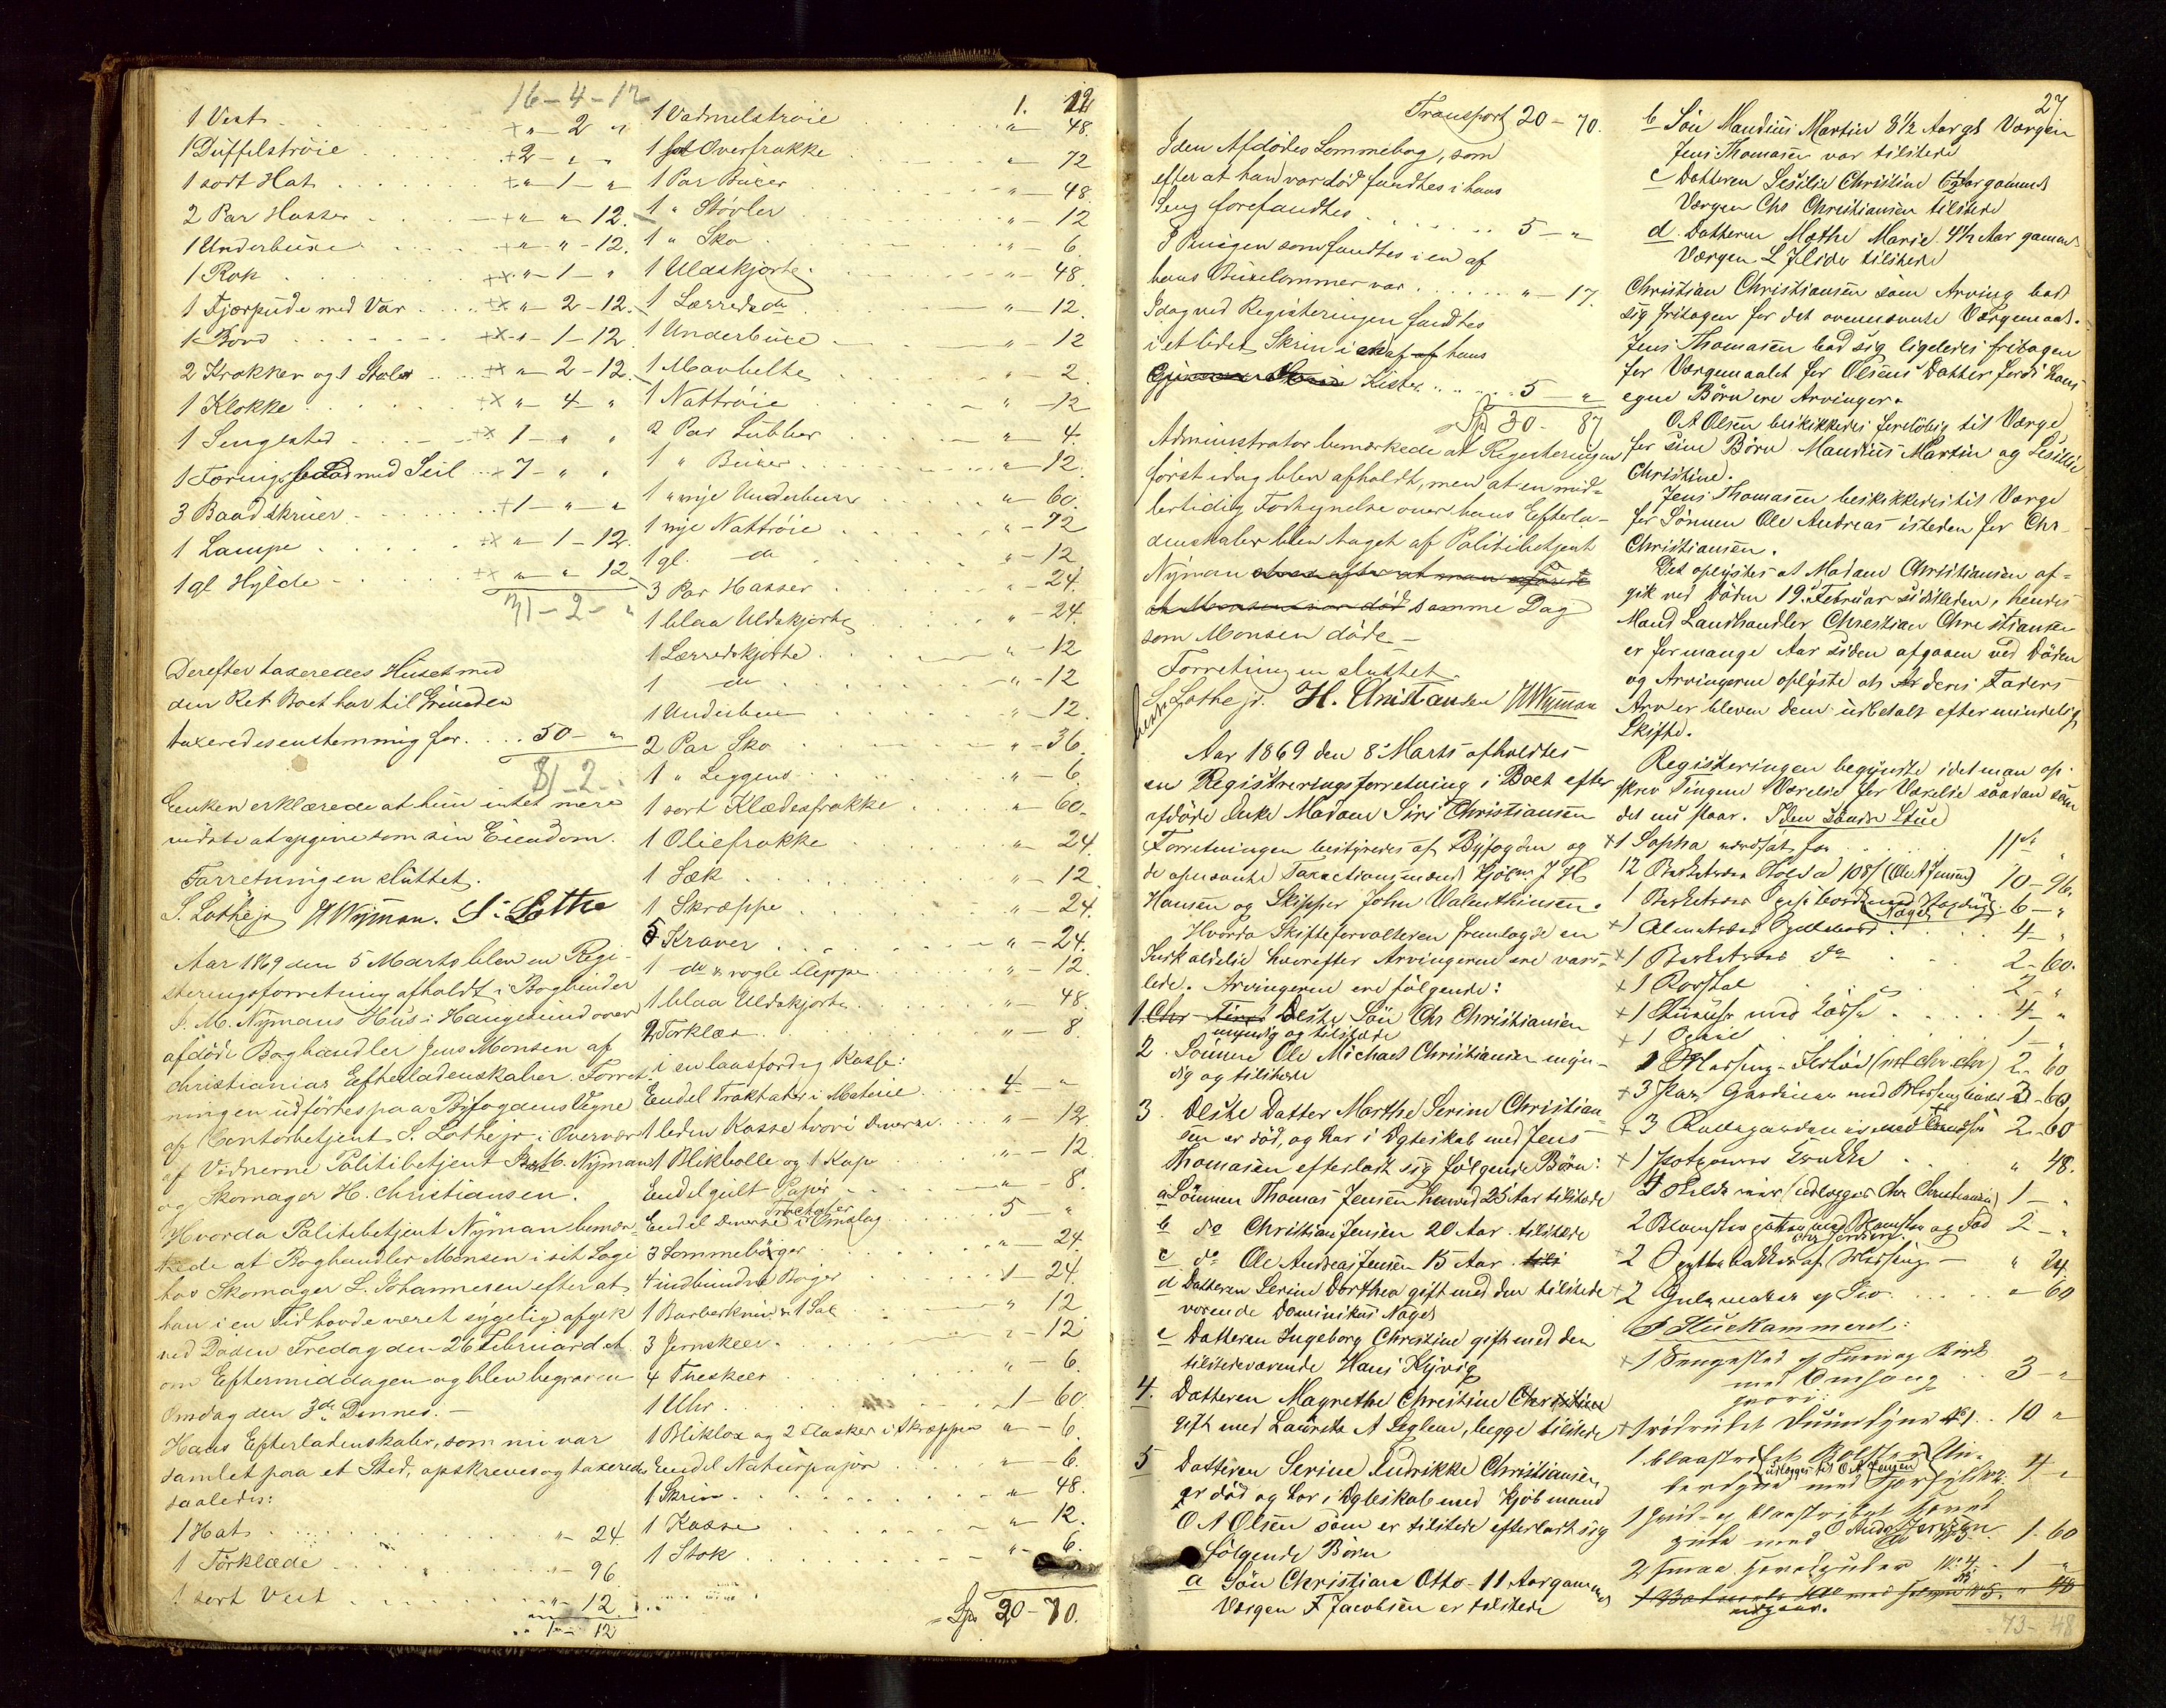 16-4-12
1 Vest . . . + " 2 "
1 Düffelstrøie . . . + 2 - " "
1 sort Hat . . . + " - 1 - "
2 Par Hosser . . . + " " 12.
1 Underbuxe . . . + " - " - 12.
1 Rok . . . +x " - 1 - "
1 Fjærpude med Var . . . +x " 2 - 12.
1 Bord . . . +x " - 1 - 12.
2 Krakker og 1 Stoler . . +x " 2 - 12.
1 Klokke . . . +x " 4 - "
1 Sengested . . . +x 1 - " "
1 Færings med Seil . . . x 7 - " "
3 Baadskruer . . . + 1 - " - "
1 Lampe . . . +x " 1 - 12.
1 gl Hylde . . . +x " " 12
31 - 2 - "
Derefter taxeredes Huset med
den Ret Boet har til Grunden
taxeredes enstemmig for . . . 50 - "
81 - 2 -
Enken erklærede at hun intet mere
vidste at opgive som sin Eiendom.
Forretningen sluttet.
S. Lothe jr W Nyman. S. Lothe
Aar 1869 den 5 Marts blev en Regi-
steringsforretning afholdt i Bogbinder
P. M. Nymans Hus i Haugesund over
afdøde Boghandler Jens Monsen af
Christianias Efterladenskaber. Forret-
ningen udførtes paa Byfogdens Vegne
af Contorbetjent S. Lothe jr. i Overvær
af Vidnerne Politibetjent M. Nyman
og Skomager H. Christiansen.
Hvorda Politibetjent Nyman bemær-
kede at Boghandler Monsen i sit Logi
hos Skomager L. Johannesen efter at
han i en Tid havde været sygelig afgik
ved Døden Fredag den 26 Februar d. A.
om Eftermiddagen og blev begraven
Onsdag den 3de Dennes. -
Hans Efterladenskaber, som nu var
samlet paa et Sted, opskreves og taxeredes
saaledes:
1 Hat . . . " 24.
1 Tørklæde . . . 96
1 sort Vest . . . " - 12
" 1 - 12
1. 12
1 Vadmelstrøie . . . " 48.
1 Overfrakke . . . " 72
1 Par Buxer . . . " - 48.
1 " Støvler . . . " - 12
1 " Sko . . . " 6
1 Uldskjorte . . . " - 48.
1 Lærreds do . . . " - 12.
1 Underbuxe . . . " - 12
1 Mavbelte . . . " 2.
1 Nattrøie . . . " - 12
2 Par Lubber . . . " 4.
1 " Buxer . . . " - 12.
1 " nye Underbuxer . . . " 60.
1 nye Nattrøie . . . " - 72
1 gl. do . . . " - 12
3 Par Hosser . . . " - 24.
1 blaa Uldskjorte . . . " - 24.
1 Lærredskjorte . . . " - 12
1 do . . . " - 12
1 Underbuxe . . . " - 12.
2 Par Sko . . . " - 36.
1 " Leggens . . . " - 6.
1 sort Klædesfrakke . . . " 60.
1 Oliefrakke . . . " 24.
1 Sæk . . . " - 12.
1 Skræppe . . . " - 24.
5 Kraver . . . " - 24.
1 do & nogle Tepper . . . " - 12.
1 blaa Uldskjorte . . . " 48.
2 Tørklær . . . " - 8.
i en laasfærdig Kasse:
Endel Traktater i Materie . . . 4 - "
1 liden Kasse hvori Diverse . . . " - 12
1 Blikbolle og 1 Kop . . . " - 12.
Endel gult Papir . . . " - 8.
Endel Diverse Tractater i Omslag . . . 5 - "
3 Lommebøger . . . " - 24.
4 indbundne Bøger . . . 1 - 24.
1 Barberkniv & 1 Sax . . . " 12
3 Jernskeer . . . " - 12
4 Theskeer . . . " - 6.
1 Uhr . . . 1 - 60.
1 Blikbox og 2 Flasker i Skræppen " - 6.
Endel Naturpapir . . . " 6.
1 Skrin . . . " 48.
1 Kasse . . . " 12.
1 Stok . . . " 6.
Sp 20 - 70.
Transport 20 - 70.
I den Afdødes Lommebog, som
efter at han var død fandtes i hans
Seng forefandtes . . . 5 - "
I Pungen som fandtes i en af
hans Buxelommer var . . . " - 17.
Idag ved Registeringen fandtes
i et lidet Skrin i en af hans
Kister . . . 5 - "
Sp 30 - 87
Administrator bemærkede at Registeringen
først idag blev afholdt, men at en mid-
lertidig Forsynelse over hans Efterla-
denskaber blev taget af Politibetjent
Nyman strax efter at man erfarede
at Monsen var død samme Dag
som Monsen døde. -
Forretningen sluttet.
S. Lothe jr. H. Christiansen W Nyman
Aar 1869 den 8. Marts afholdtes
en Registreringsforretning i Boet efter
afdøde Enke Madame Siri Christiansen
Forretningen bestyredes af Byfogden og
de opnævnte Taxactionsmænd Kjøbm. J H
Hansen og Skipper John Valentinsen.
Hvorda Skifteforvalteren fremlagde en
Indkaldelse hvorefter Arvingerne ere vars-
lede. Arvingerne ere følgende:
1. Ældste Søn Chr Christiansen
myndig og tilstede
2. Sønnen Ole Michael Christiansen myn-
dig og tilstede
3. Ældste Datter Marthe Serine Christian-
sen er død, og har i Egteskab med Jens
Thomasen efterladt sig følgende Børn:
a Sønnen Thomas Jensen henved 25 Aar tilstede
b do Christian Jensen 20 Aar. tilstede
c do Ole Andreas Jensen 15 Aar. tils
d Datteren Serine Dorthea gift med den tilstede
værende Dominikus Nagel
e Datteren Ingeborg Christine gift med den
tilstedeværende Hans Kyvig
4. Datteren Magrethe Christine Christine
gift med Lauritz A Leglem, begge tilstede
5 Datteren Serine Endrikke Christiansen,
er død og har i Egteskab med Kjøbmand
O A Olsen som er tilstede efterladt sig
følgende Børn
a Søn Christian Otto 11 Aar gammel
Værgen F Jacobsen er tilstede
27
b Søn Mandius Martin 8 1/2 Aar gl Værgen
Jens Thomasen var tilstede
c Datteren Sesilie Christine 6 Aar gammel
Værgen Chr Christiansen tilstede
d. Datteren Mathe Marie 4 1/2 Aar gammel
Værgen L tilstede
Christian Christiansen som Arving bad
sig fritagen for det ovennævnte Værgemaal.
Jens Thomasen bad sig ligeledes fritagen
for Værgemaalet for Olsens Datter fordi hans
egne Børn ere Arvinger.
O A Olsen beskikkedes foreløbig til Værge
for sine Børn Mandius Martin og Sesilie
Christine.
Jens Thomasen beskikkedes til Værge
for Sønnen Ole Andreas istedenfor Chr
Christiansen.
Det oplystes at Madam Christiansen af-
gik ved Døden 19. Februar sidstleden, hendes
Mand Landhandler Christian Christiansen
er for mange Aar siden afgaaen ved Døden
og Arvingerne oplyste at deres Faders
Arv er bleven dem udbetalt efter mindelig
Skifte.
Registeringen begyndte idet man op-
skrev Tingene Værelse for Værelse saadan som
det nu staar. I den søndre Stue
+ 1 Sopha værdsat for . . . 11
12 Stole a 108 (Ole A Jensen) 10 - 96.
1 Birketræes med (Nagel) 6 - "
+ 1 . . . 4 - "
+ 1 Birketræes do . . . 2 - 60.
+ 1 . . . 2 - "
+ 1 med . . . 4 - "
+ 1 . . . 1 - "
1 Messing (Chr Chr) 2 - 60
+ 3 Par Gardiner med Messing 3 - 60
+ 3 Rullegardiner med 2 - 60
+ 1 . . . " 48.
(udlægges Chr Christiansen) 1 - "
2 Blomster med Blomster og Fad 2 - "
+ 2 af Messing - " 24
+ 2 af . . . " 60
I Stuekammeret:
+ 1 Sengested af og Birk
med Omhæng . . . 3 - "
hvori:
+ 1 rødrudet No 1 . . 10 "
1 blaastribet Bolster Un-
(udlægges til O A Jensen)
derdyne med No 2. 4 - "
1 hvid- og blaastribet
pude med No 3. 1 - 60
2 smaa No 4. 1 - "
1 med No 5. " 48
udgaar.
73 - 48